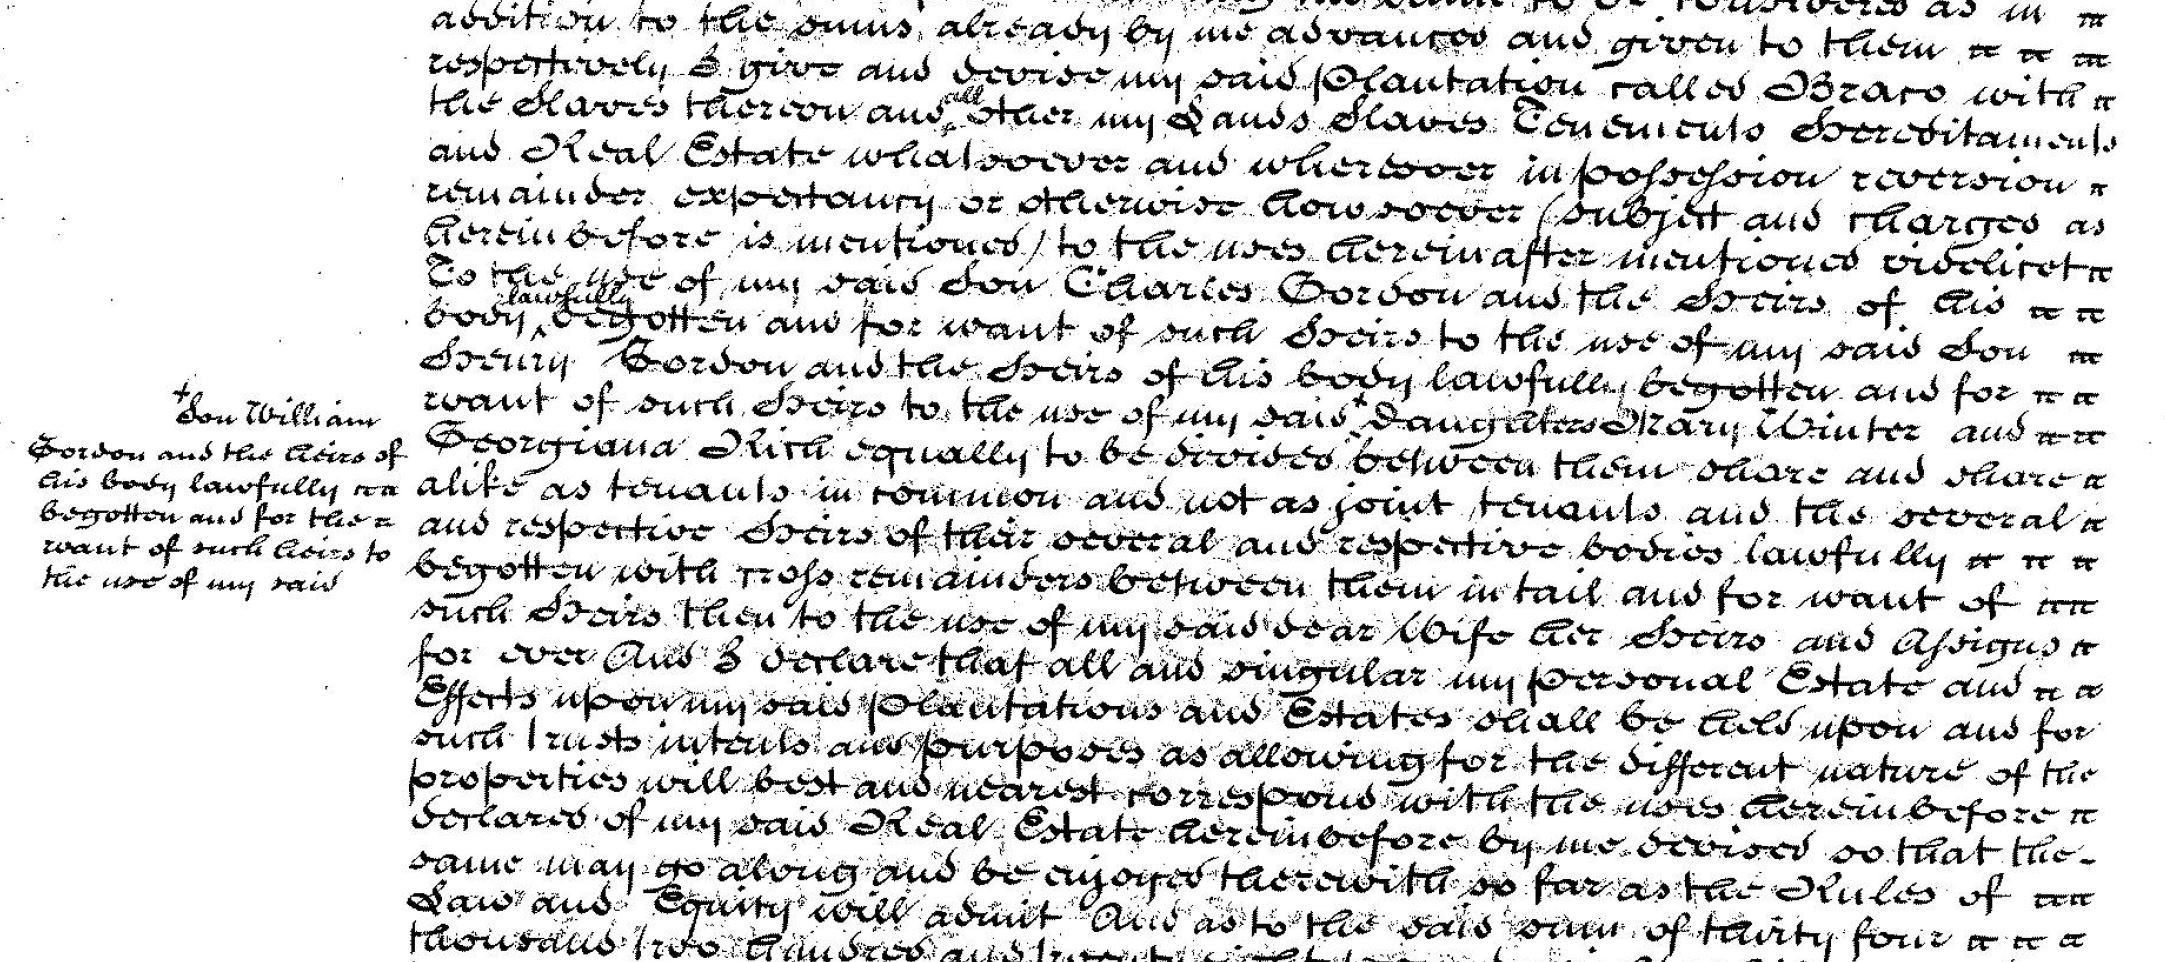 the same to be considered as in
addition to the sums already by me advanced and given to them
respectively I give and devise my said Plantation called Braco with
the Slaves thereon and all other my Lands Slaves Tenements Hereditaments
and Real Estate whatsoever and wheresoever in possession reversion
remainder expectancy or otherwise howsoever (subject and charged as
hereinbefore is mentioned) to the uses hereinafter mentioned videlicet
To the use of my said Son Charles Gordon and the Heirs of his
body lawfully begotten and for want of such Heirs to the use of my said Son
Henry Gordon and the Heirs of his body lawfully begotten and for
want of such Heirs to the use of my said + Daughters Mary Winter and
Georgiana Rich equally to be divided between them share and share
alike as tenants in common and not as joint tenants and the several
and respective Heirs of their several and respective bodies lawfully
begotten with cross remainders between them in tail and for want of
such Heirs then to the use of my said dear Wife her Heirs and Assigns
for ever And I declare that all and singular my personal Estate and
Effects upon my said Plantations and Estates shall be held upon and for
such trusts intents and purposes as allowing for the different nature of the
properties will best and nearest correspond with the uses hereinbefore
declared of my said Real Estate hereinbefore by me devised so that the
same may go along and be enjoyed therewith so far as the Rules of
Law and Equity will admit And as to the said sum of thirty four
thousand two hundred and twenty
+ Son William
Gordon and the heirs of
his body lawfully
begotten and for the
want of such heirs to
the use of my said